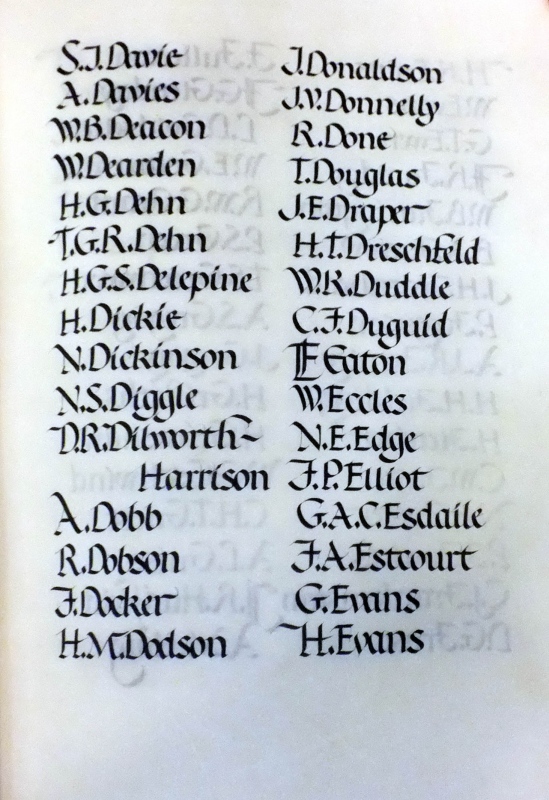 S.J.Davie
A.Davies
W.B.Deacon
W.Dearden
H.G.Dehn
T.G.R.Dehn
H.G.S.Delepine
H.Dickie
N.Dickinson
N.S.Diggle
D.R.Dilworth-
Harrison
A.Dobb
R.Dobson
F.Docker
H.M.Dodson
J.Donaldson
J.V.Donnelly
R.Done
T.Douglas
J.E.Draper
H.T.Dreschfeld
W.K.Duddle
C.F.Duguid
Eaton
W.Eccles
N.E.Edge
F.P.Elliot
G.A.C.Esdaile
F.A.Estcourt
G.Evans
H.Evans